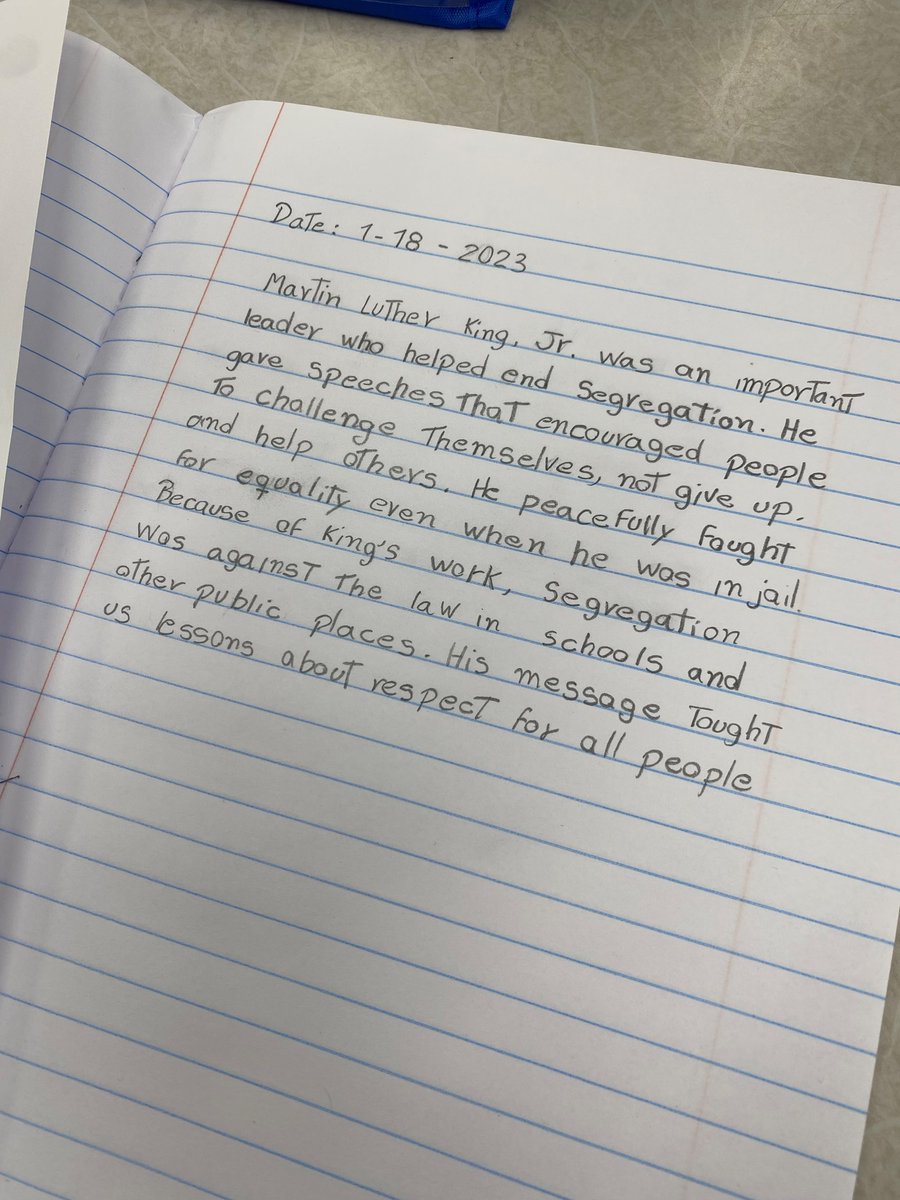 Date: 1-18-2023
Martin Luther King, Jr. was an important
leader who helped end segregation. He
gave speeches that encouraged people
to challenge themselves, not give up.
and help others. He peacefully fought
for equality even when he was in jail.
Because of King's work, segregation
was against the law in schools and
other public places. His message tought
us lessons about respect for all people